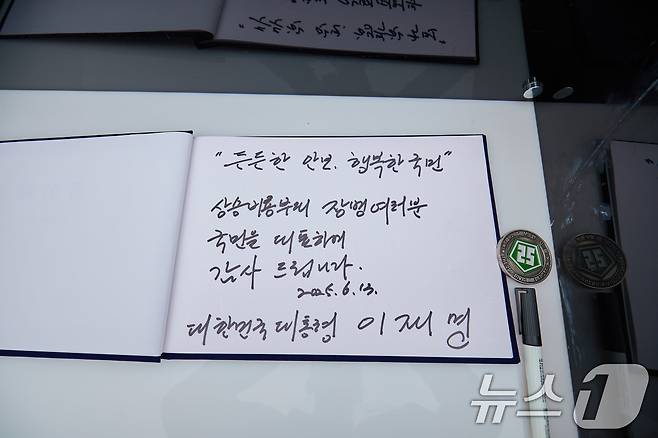 "든든한 안보, 행복한 국민"
상승비룡부대 장병여러분
국민을 대표하여
감사 드립니다.
2025. 6. 13.
대한민국 대통령 이재명
뉴스1